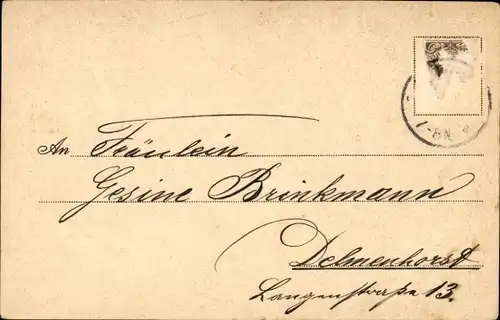 7-8N
An Fräulein
Gesine Brinkmann
Delmenhorst
Langenstraße 13.